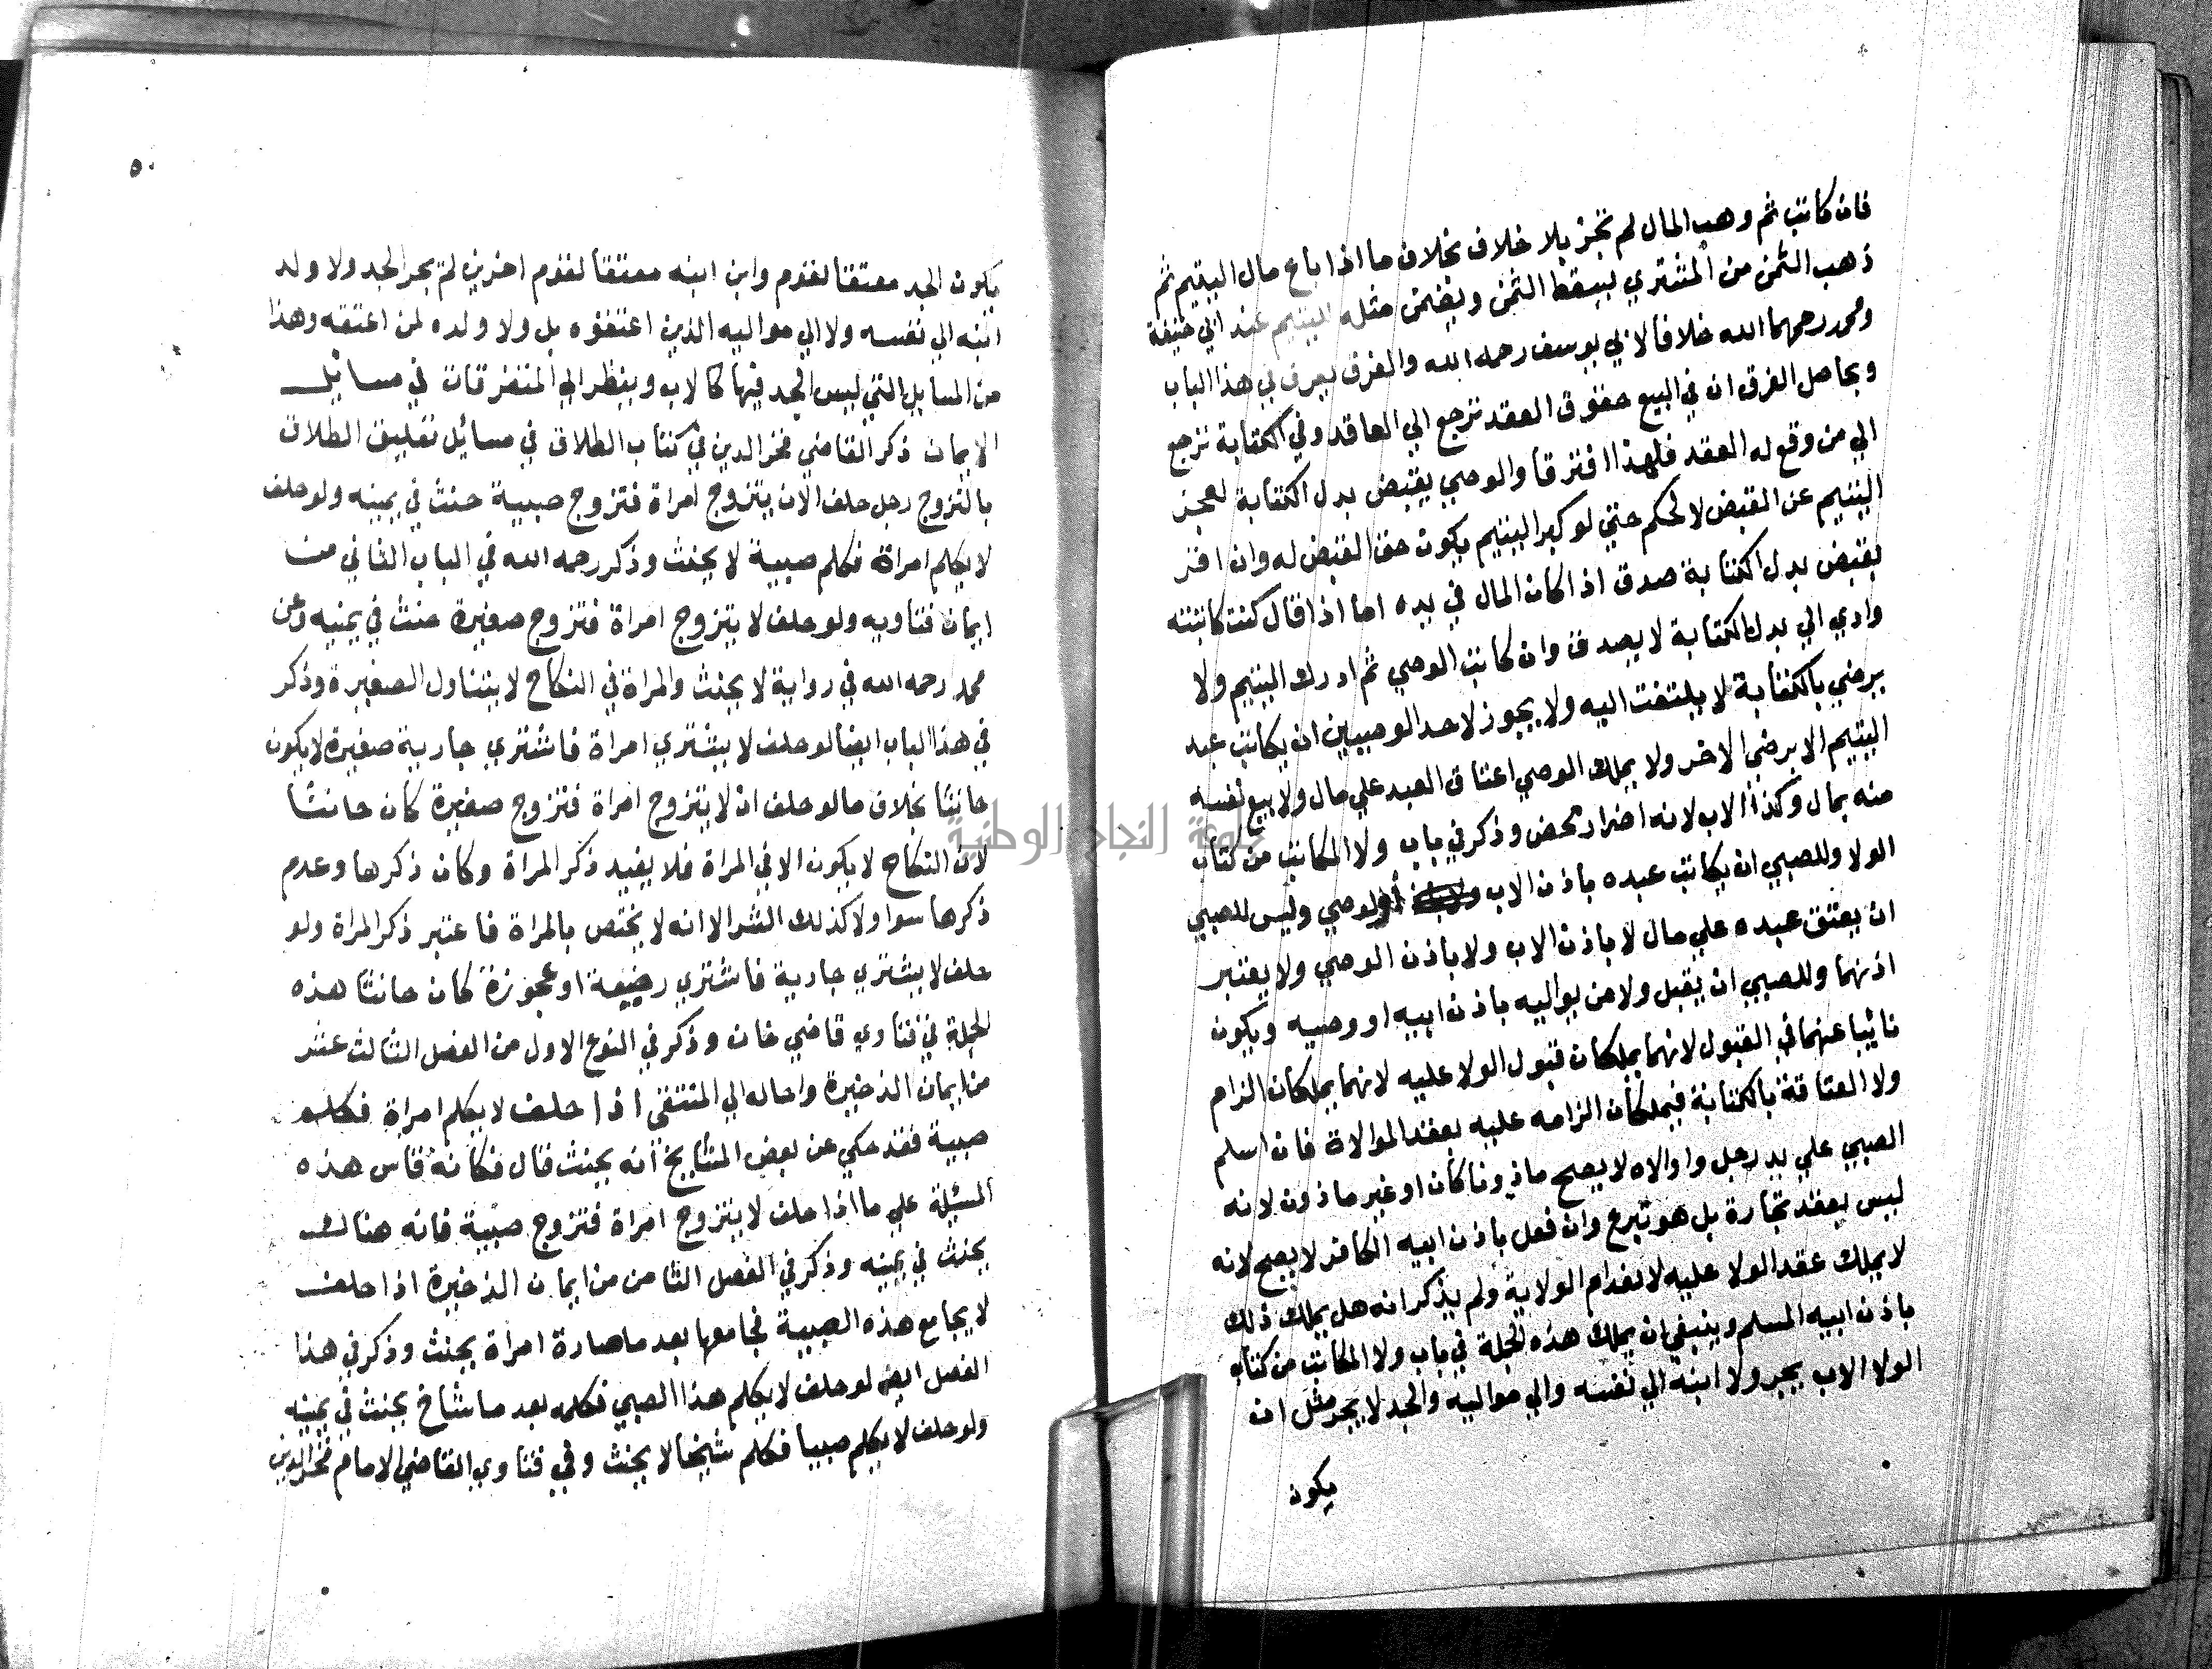 فان كاتب ثم وهب المال لم تجز بلا خلاف بخلاف ما اذا باع مال اليتيم ثم
ذهب الثمن من المشتري يسقط الثمن ويضمن مثله لليتيم عند ابي حنيفة
ومحمد رحمهما الله خلافا لابي يوسف رحمه الله والفرق يعرف في هذا الباب
وحاصل الفرق ان في البيع حقوق العقد ترجع الي العاقد وفي الكتابة ترجع
الي من وقع له العقد فلهذا افترقا والوصي يقبض بدل الكتابة لعجز
اليتيم عن القبض لا لحكم حتي لو كبر اليتيم يكون حق القبض له وان اقر
بقبض بدل الكتابة صدق اذا كان المال في يده اما اذا قال كنت كاتبته
وادي الي بدل الكتابة لا يصدق وان كاتب الوصي ثم ادرك اليتيم ولا
يرضي بالكتابة لا يلتفت اليه ولا يجوز لاحد الوصيين ان يكاتب عبد
اليتيم الا برضي الاخر ولا يملك الوصي اعتاق العبد علي مال ولا بيع نفسه
منه بمال وكذا الاب لانه اضرار محض وذكر في باب ولا المكاتب من كتاب
الولا وللصبي ان يكاتب عبده باذن الاب او الوصي وليس للصبي
ان يعتق عبده علي مال لا باذن الاب ولا باذن الوصي ولا يعتبر
اذنهما وللصبي ان يقبل ولا من يواليه باذن ابيه او وصيه ويكون
نائبا عنهما في القبول لانهما يملكان قبول الولا عليه لانهما يملكان الزام
ولا العتاقة بالكتابة فيملكان الزامه عليه بعقد الموالاة فان اسلم
الصبي علي يد رجل واوالاه لا يصح ماذونا كان او غير ماذون لانه
ليس بعقد تجارة بل هو تبرع وان فعل باذن ابيه الكافر لا يصح لانه
لا يملك عقد الولا عليه لانعدام الولاية ولم يذكر انه هل يملك ذلك
باذن ابيه المسلم وينبغي ان يملك هذه الجملة في باب ولا المكاتب من كتاب
الولا الاب يجر ولا ابنه الي نفسه والي مواليه والجد لا يجر مثل ان
يكون
٥٠
يكون الجد معتقا لقوم وابن ابنه معتقا لقوم اخرين لم يجر الجد ولا ولد
ابنه الي نفسه ولا الي مواليه الذين اعتقوه بل ولا ولده لمن اعتقه وهذا
من المسايل التي ليس الجد فيها كالاب وينظر الي المتفرقات في مسائل
الايمان ذكر القاضي فخر الدين في كتاب الطلاق في مسائل تعليق الطلاق
بالتزوج رجل حلف الان يتزوج امراة فتزوج صبية حنث في يمينه ولو حلف
لا يكلم امراة فكلم صبية لا يحنث وذكر رحمه الله في الباب الثاني من
ايمان فتاويه ولو حلف لا يتزوج امراة فتزوج صغيرة حنث في يمينه وعن
محمد رحمه الله في رواية لا يحنث والمراة في النكاح لا يتناول الصغيرة وذكر
في هذا الباب ايضا لو حلف لا يشتري امراة فاشتري جارية صغيرة لا يكون
حانثا بخلاف ما لو حلف ان لا يتزوج امراة فتزوج صغيرة كان حانثا
لان النكاح لا يكون الا في المراة فلا يفيد ذكر المراة وكان ذكرها وعدم
ذكرها سوا ولا كذلك الشرا لا انه لا يختص بالمراة فاعتبر ذكر المراة ولو
حلف لا يشتري جارية فاشتري رضيعة او عجوزة كان حانثا هذه
الجملة في فتاوي قاضي خان وذكر في النوع الاول من الفصل الثالث عشر
من ايمان الذخيرة واحاله الي المنتقى اذا حلف لا يكلم امراة فكلم
صبية فقد حكي عن بعض المشايخ انه يحنث قال فكانه قاس هذه
المسئلة علي ما اذا حلف لا يتزوج امراة فتزوج صبية فانه هناك
يحنث في يمينه وذكر في الفصل الثامن من ايمان الذخيرة اذا حلف
لا يجامع هذه الصبية فجامعها بعد ما صارة امراة يحنث وذكر في هذا
الفصل ايضا لو حلف لا يكلم هذا الصبي فكلمه بعد ما شاخ يحنث في يمينه
ولو حلف لا يكلم صبيا فكلم شيخا لا يحنث وفي فتاوي القاضي الامام فخر الدين
جامعة النجاح الوطنية